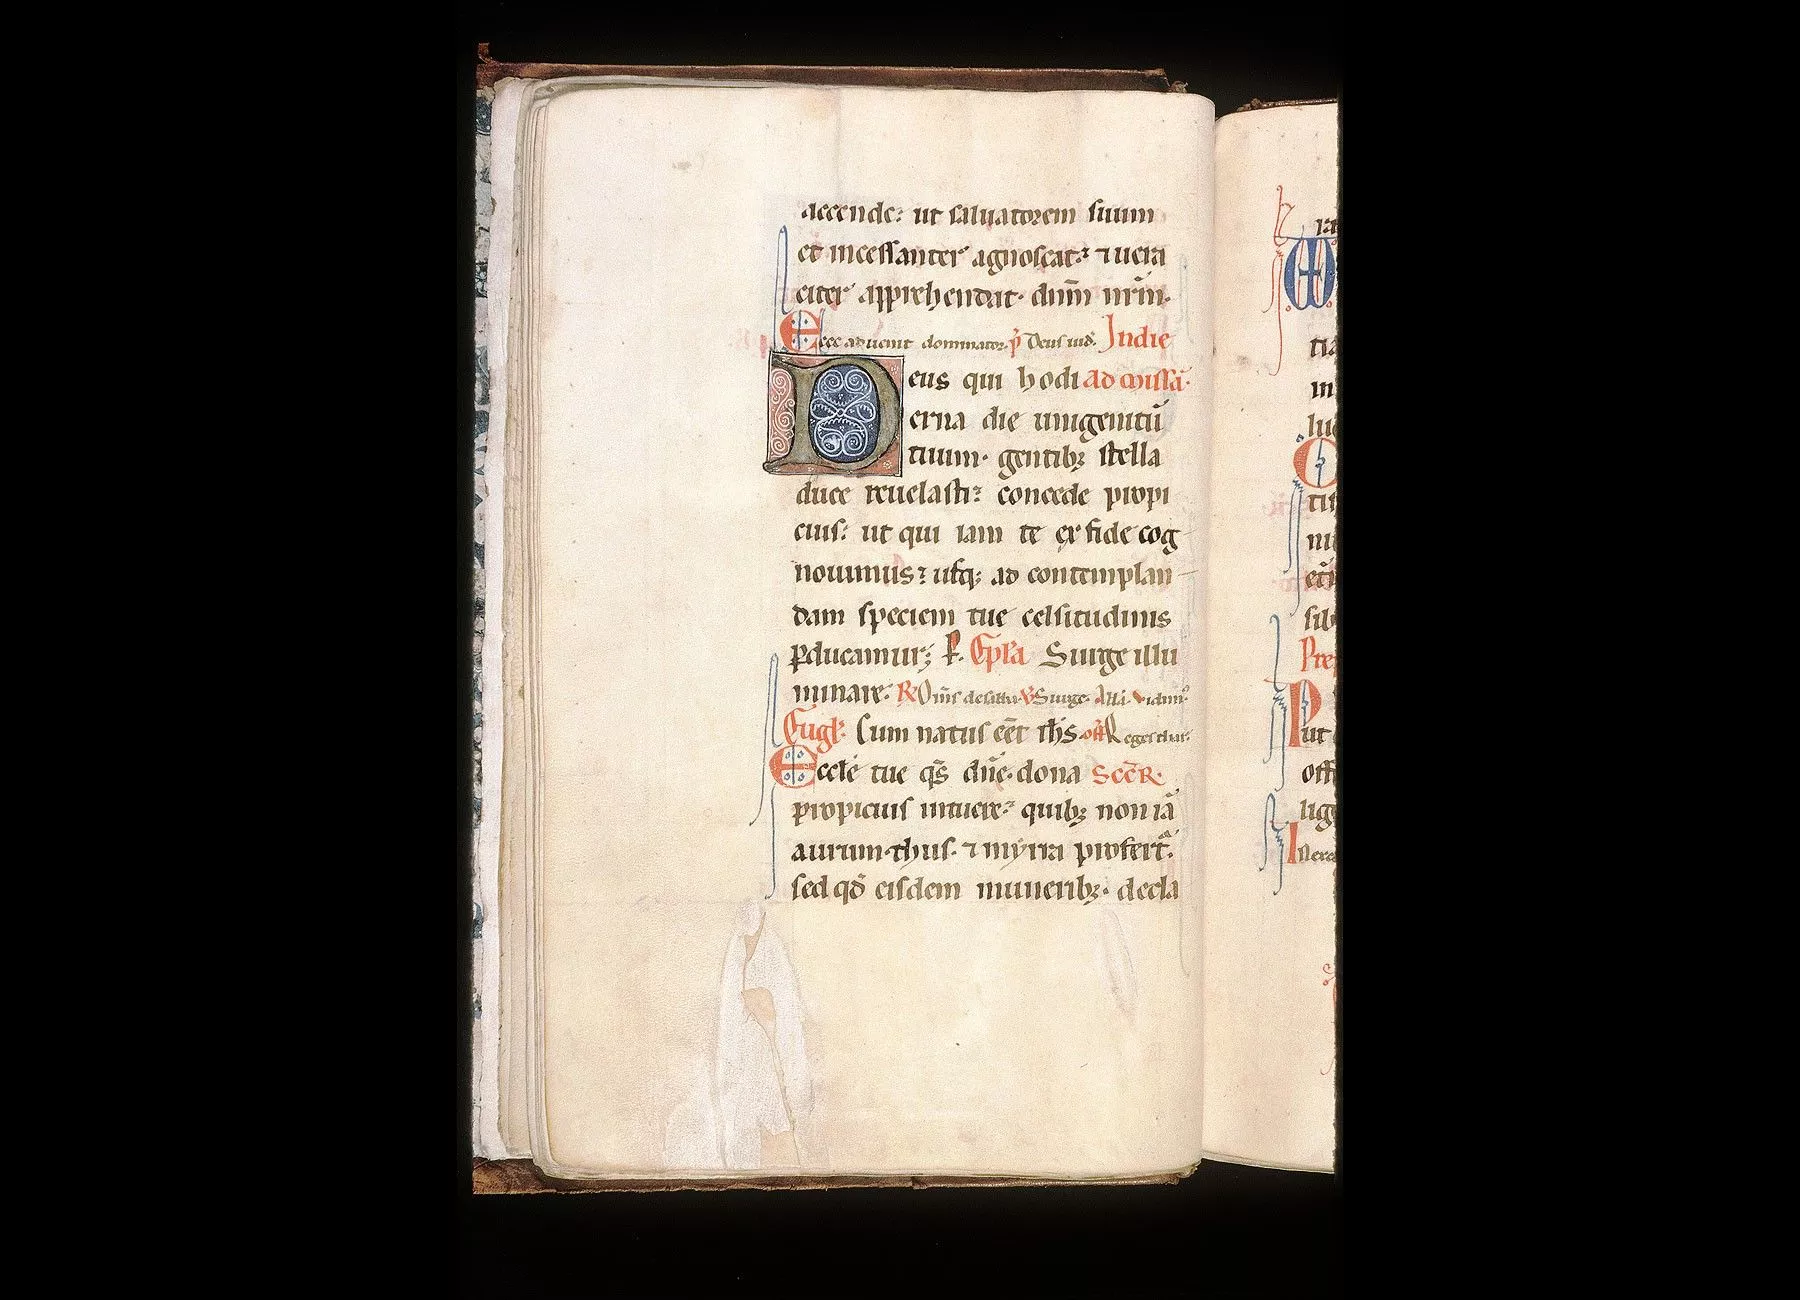 accende: ut saluatorem suum
et incessanter agnoscat: ⁊ uera
citer apprehendat. dnm̄ nr̄m.
Ecce aduenit dominator p̄ Deus iud. In die
Deus qui hodi ad missā.
erna die unigenitū
tuum. gentibꝫ stella
duce reuelasti: concede propi
cius: ut qui iam te ex fide cog
nouimus: usqꝫ ad contemplan
dam speciem tue celsitudinis
ꝑducamur; ꝑ. Epl̄a Surge illu
minare. ℟ Om̄s de saba ℣ Surge. Alla. ℣ Vidim᷒
Eugl̄. Cum natus eēt ih̄s. off̄ Reges thar
Eccl̄e tue qs̄ dn̄e. dona SECR.
propicius intuere: quibꝫ non iā
aurum. thus. ⁊ myrra profert᷑.
sed qd̄ eisdem muneribꝫ. decla